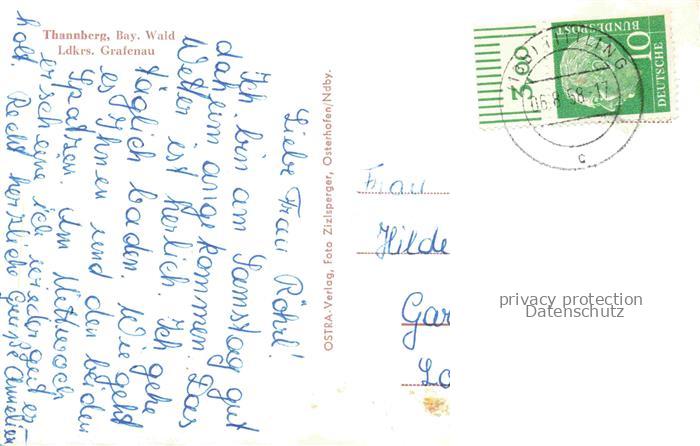 Thannberg, Bay. Wald
Ldkrs. Grafenau
Liebe Frau Röhrl!
Ich bin am Samstag gut
daheim angekommen. Das
Wetter ist herlich. Ich gehe
täglich baden. Wie geht
es Ihnen und den beiden
Spatzen. Am Mittwoch
erscheine ich wieder
halt Recht herzliche Grüße Annelies
OSTRA-Verlag, Foto Zizlsperger, Osterhofen/Ndby.
3,00
DEUTSCHE
BUNDESPOST
10
06.8.58-17
c
Frau
Hilde
Gar
privacy protection
Datenschutz